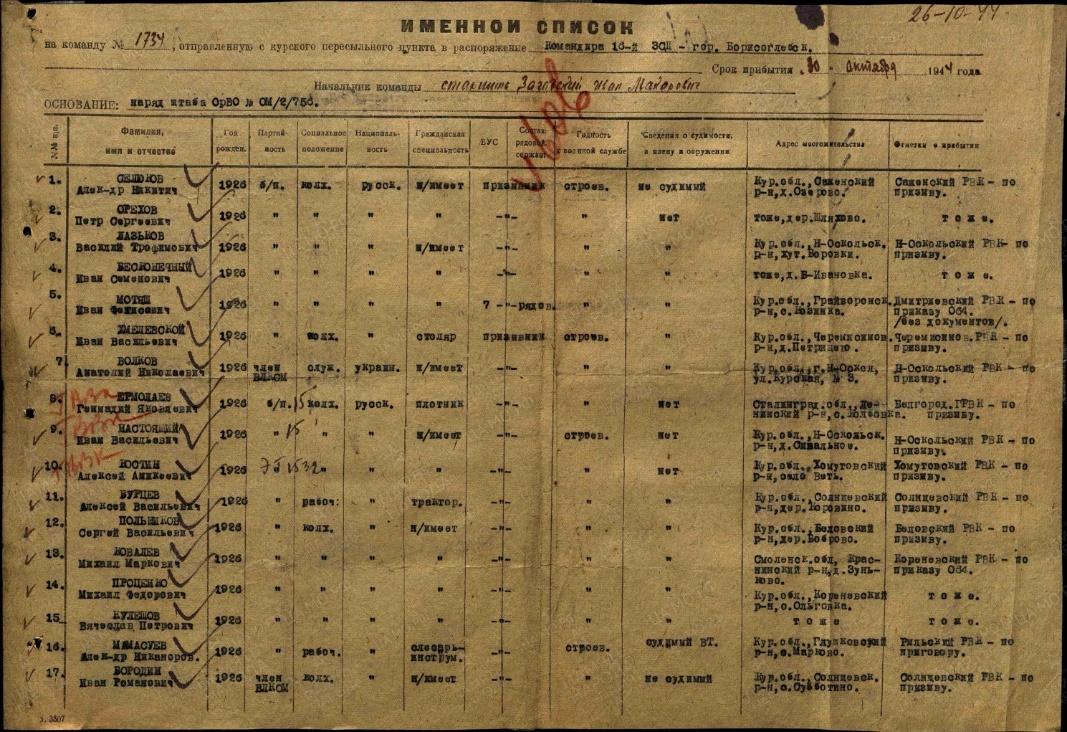 26-10-44
ИМЕННОЙ СПИСОК
на команду № 1734, отправленную с курского пересыльного пункта в распоряжение Командира 16-й ЗСД - гор. Борисоглебск.
Срок прибытия 30 - октября 1944 года
Начальник команды старшина Иван
ОСНОВАНИЕ: наряд штаба ОрВО № ОМ/2/756.
№№ п.п. Фамилия, имя и отчество Год рожден. Партийность Социальное положение Национальность Гражданская специальность ВУС Состав: рядовой, сержант Годность к военной службе Сведения о судимости, и плену и окружении Адрес местожительства Отметки о прибытии
1. Алек-др Никитич 1926 б/п. колх. русск. н/имеет призывник строев. не судимый Кур.обл., р-н,д.Озерово. РВК - по призыву.
2. ОРЕХОВ Петр Сергеевич 1926 " " " " -"- " нет тоже,дер.Шляхово. т о ж е.
3. ЛАЗЬКОВ Василий Трофимович 1926 " " " н/имеет -"- " " Кур.обл.,Н-Оскольск. р-н, хут.Боровки. Н-Оскольский РВК- по призыву.
4. БЕСКОНЕЧНЫЙ Иван Семенович 1926 " " " " -"- " " тоже,д.В-Ивановка. т о ж е.
5. Иван 1926 " " " " 7 -"-рядов. " " Кур.обл.,Грайворонск. р-н,с. Дмитриевский РВК - по приказу 064. /без документов/.
6. ХМЕЛЕВСКОЙ Иван Васильевич 1926 " колх. " столяр призывник строев. " Кур.обл.,Черемисинов. р-н,д.Петрищево. Черемисинов.РВК - по призыву.
7. ВОЛКОВ Анатолий Николаевич 1926 член ВЛКСМ служ. украин. н/имеет -"- " " Кур.обл., г.Н-Оскол, ул.Курская, № 3. Н-Оскольский РВК - по призыву.
8. ЕРМОЛАЕВ Геннадий Яковлевич 1926 б/п. 15 колх. русск. плотник -"- " нет Сталинград.обл., Ленинский р-н,с. Белгород.ГРВК - по призыву.
9. НАСТОЯЩИЙ Иван Васильевич 1926 " 15 " " н/имеет -"- строев. нет Кур.обл., Н-Оскольск. р-н,д. Н-Оскольский РВК - по призыву.
10. КОСТИН Алексей 1926 " " " -"- " нет Кур.обл., Хомутовский р-н,село Веть. Хомутовский РВК - по призыву.
11. БУРЦЕВ Алексей Васильевич 1926 " рабоч. " трактор. -"- " " Кур.обл., Солнцевский р-н,дер.Коровино. Солнцевский РВК - по призыву.
12. Сергей Васильевич 1926 " колх. " н/имеет -"- " " Кур.обл., Беловский р-н,дер.Боброво. Беловский РВК - по призыву.
13. КОВАЛЕВ Михаил Маркович 1926 " " " " -"- " " Смоленск.обл, Краснинский р-н,д.Зуньково. Кореневский РВК - по приказу 064.
14. ПРОЦЕНКО Михаил Федорович 1926 " " " " -"- " " Кур.обл.,Кореневский р-н,с.Ольговка. т о ж е.
15. КУЛЕШОВ Вячеслав Петрович 1926 " " " " -"- " " т о ж е т о ж е.
16. МАМАСУЕВ Алек-др Никаноров. 1926 " рабоч. " слесарь-инструм. -"- строев. судимый ВТ. Кур.обл., Глушковский р-н,с.Марково. Рильский РВК - по приговору.
17. БОРОДИН Иван Романович 1926 член ВЛКСМ колх. " н/имеет -"- " не судимый Кур.обл., Солнцевск. р-н,с.Субботино. Солнцевский РВК - по призыву.
З. 3807